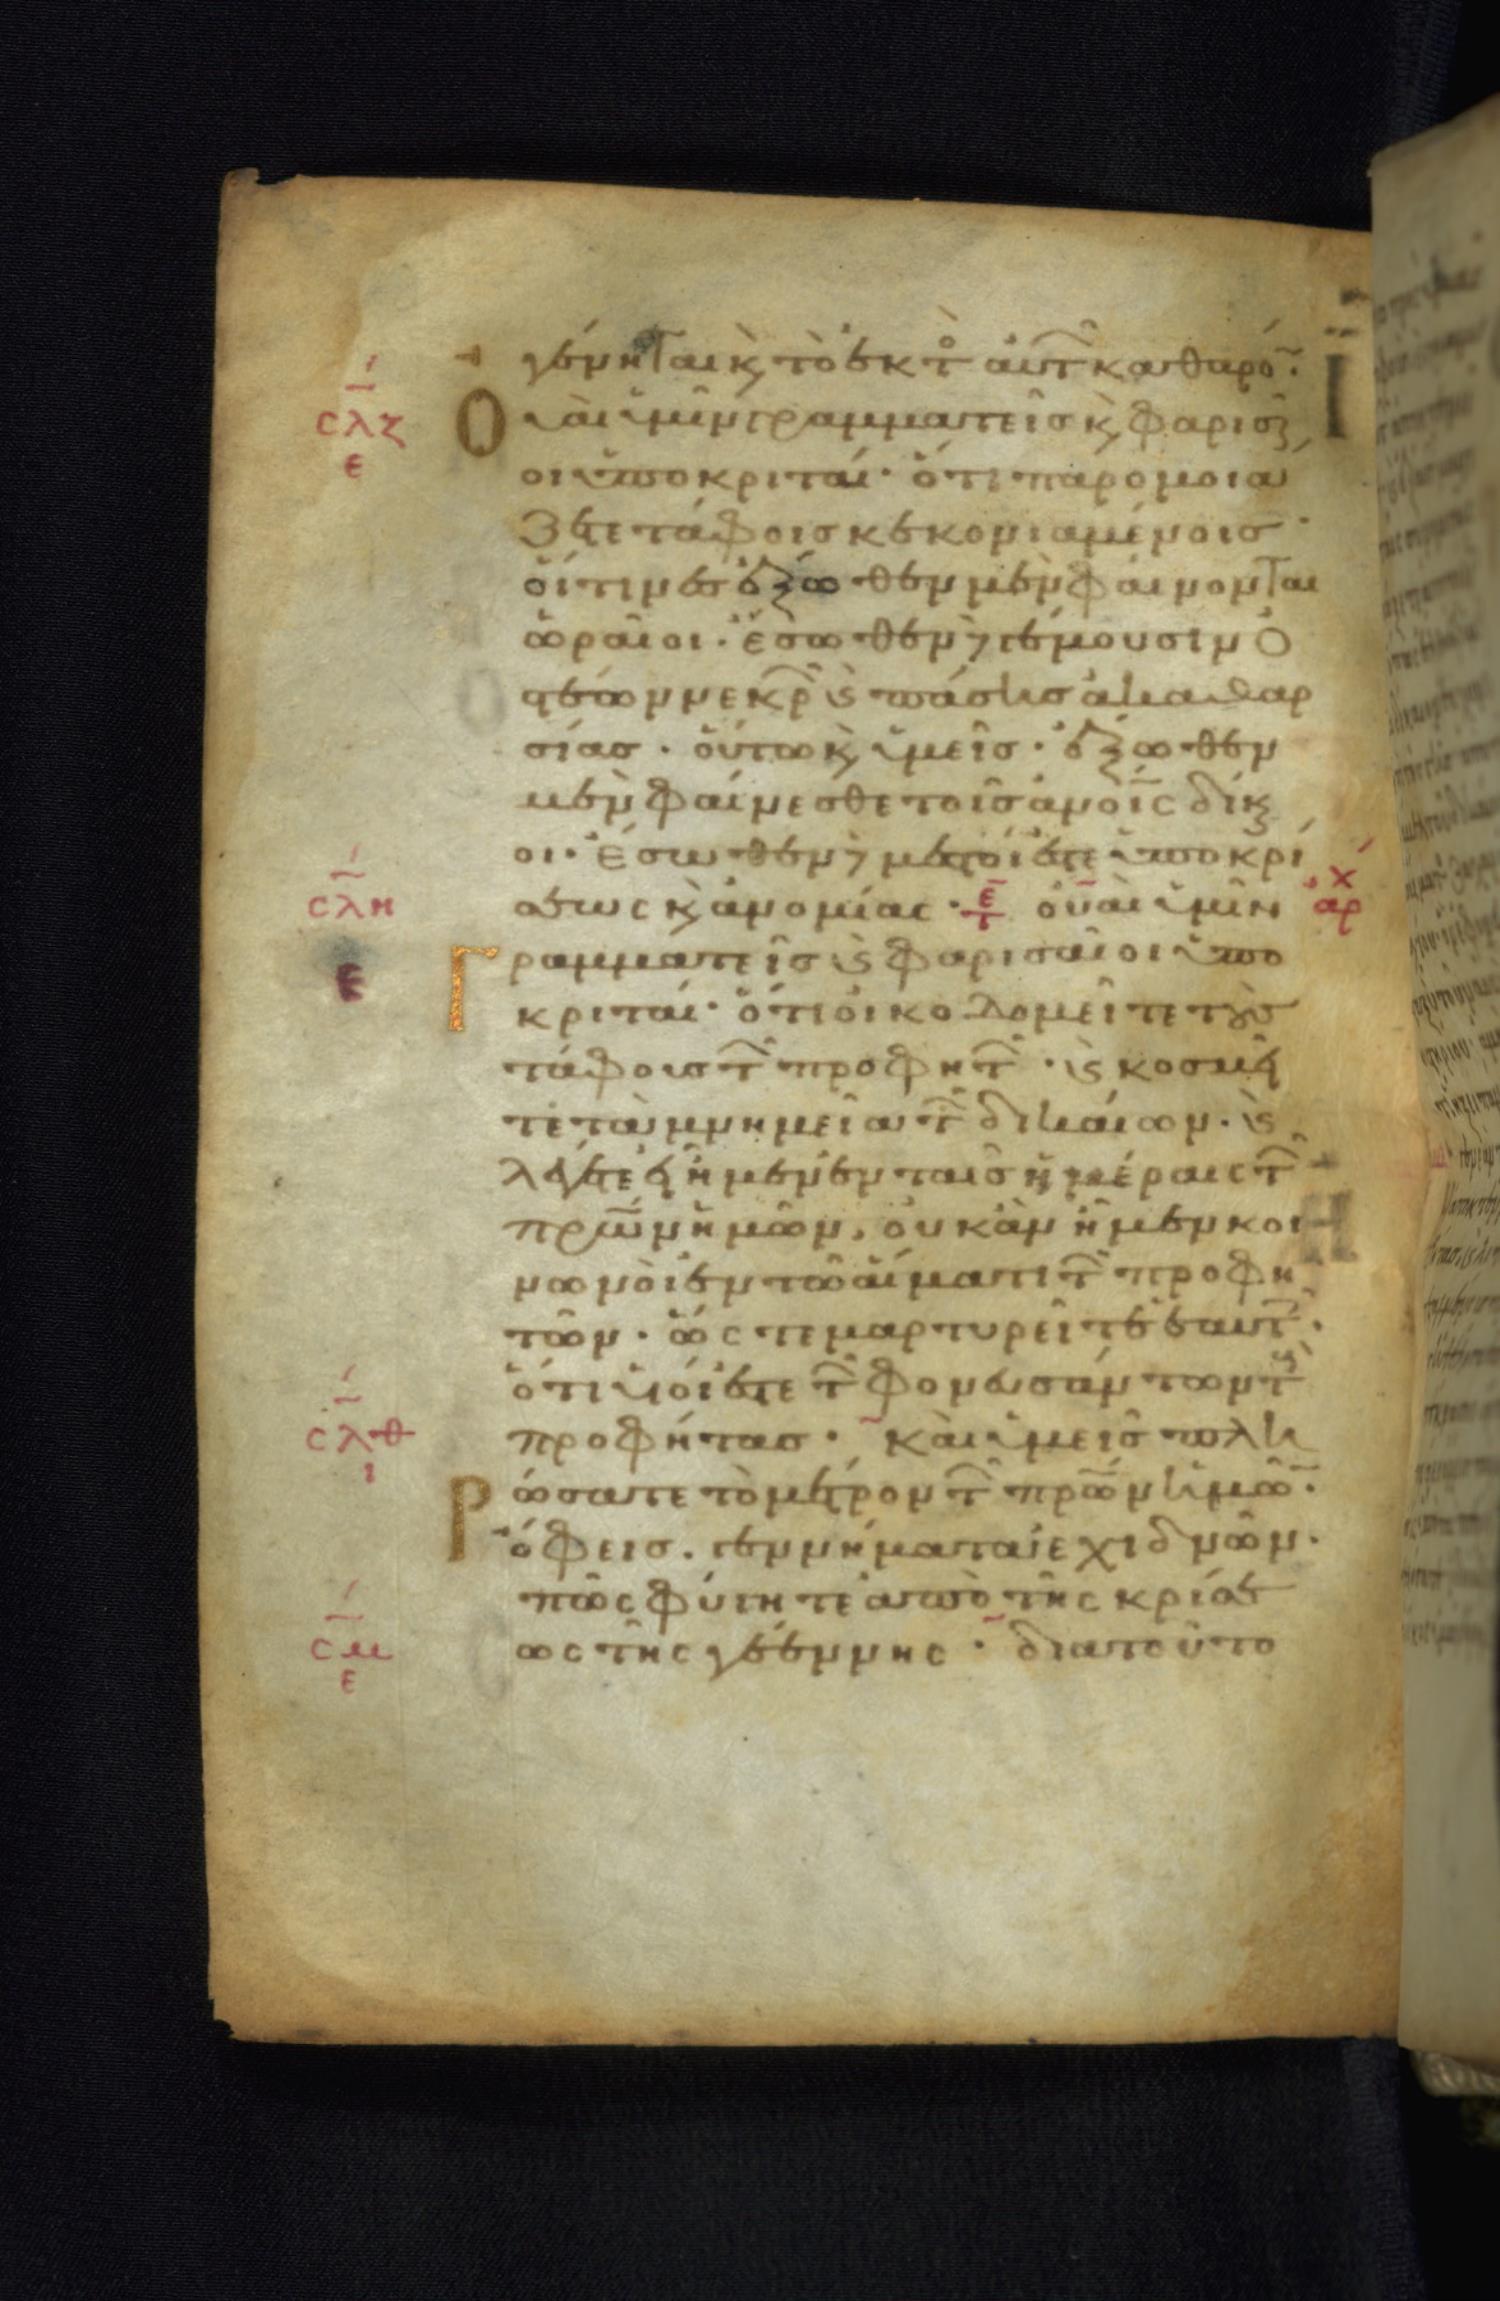 γένηται κ̀ τὸ ἐκτὸ αὐτ̑ καθαρό̄·
Οὐαὶ ὑμῖν γραμματεῖσ κ̀ φαρισαῖ
οι ὑποκριταί· ὅτι παρομοιά
ζετε τάφοισ κεκονιαμένοισ·
οἵτινεσ ἔξωθεν μὲν φαίνονται
ὡραῖοι· ἔσωθεν δὲ γέμουσιν ὀ
στέων νεκρῶ̄ κ̀ πάσησ ἀκαθαρ
σίασ· οὕτω κ̀ ὑμεῖσ· ἔξωθεν
μὲν φαίνεσθε τοῖσ ἀνοῖς δίκαι
οι· ἔσωθεν δὲ μεστοί ἐστε ὑποκρί
σεως κ̀ ἀνομίας· τε οὐαὶ ὑμῖν
Γραμματεῖσ κ̀ φαρισαῖοι ὑπο
κριταί· ὅτι οἰκοδομεῖτε τοὺσ
τάφουσ τ̑ προφητ̑· κ̀ κοσμεῖ
τε τὰ μνημεῖα τ̑ δικαίων· κ̀
λέγετε εἰ ἦμεν ἐν ταῖσ ἡμέραις τ̑
πρω̄ν ἡμῶν, οὐκ ἂν ἦμεν κοι
νωνοὶ ἐν τῶ αἵματι τ̑ προφη
τῶν· ὥς τε μαρτυρεῖτε ἑαυτ̑·
ὅτι υἱοί ἐστε τ̑ φονευσάντων τ̀
προφήτασ· καὶ ὑμεῖσ πλη
Ρώσατε τὸ μέτρον τ̑ πρω̄ν ὑμῶ̄·
ὄφεισ· γεννήματα ἐχιδνῶν·
πῶς φύγητε ἀπὸ τῆς κρίσε
ως τῆς γεέννης· διατοῦτο
σλζ
ε
σλη
ε
σλθ
ι
σμ
ε
αρχ